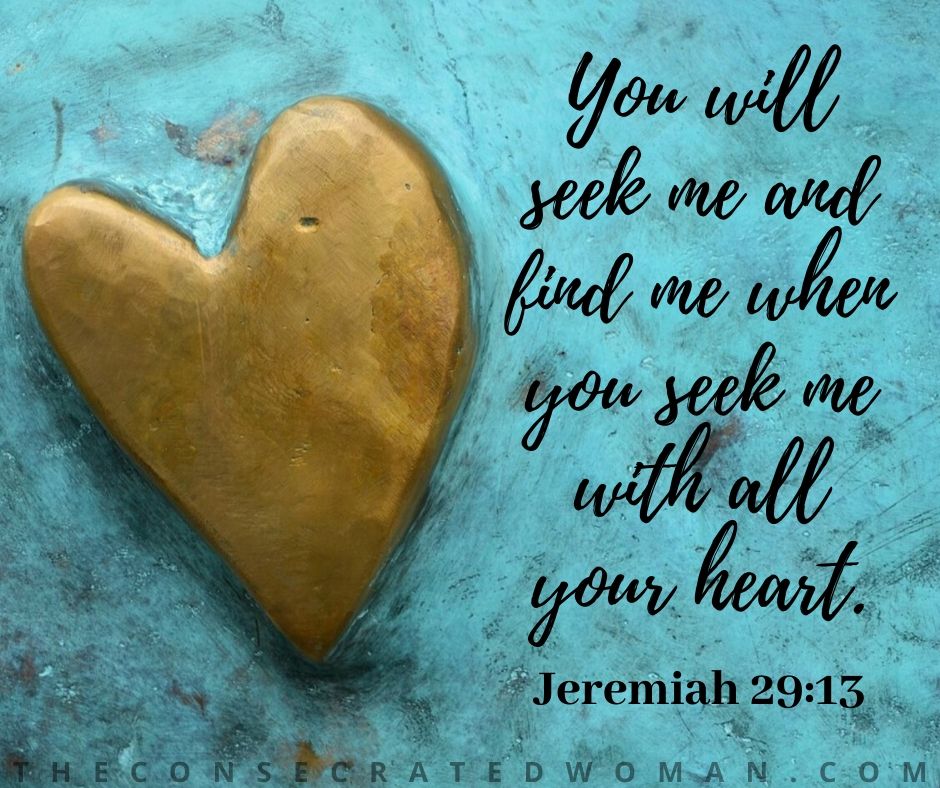 You will
seek me and
find me when
you seek me
with all
your heart.
Jeremiah 29:13
THECONSECRATEDWOMAN.COM